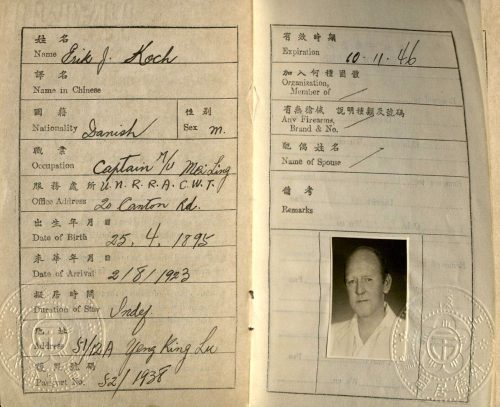 姓 名
Name Erik J. Koch
譯 名
Name in Chinese
國 籍
Nationality Danish
性 別
Sex m.
職 業
Occupation Captain M/V Mei Ling
服 務 處 所 U.N.R.R.A. C.W.T.
Office Address 20 Canton Rd.
出 生 年 月 日
Date of Birth 25. 4. 1895
來 華 年 月 日
Date of Arrival 2/8/1923
擬 居 時 間
Duration of Stay Indef.
地 址
Address 51/12A Yeng King Lu
護 照 號 碼
Passport No. 52/1938
有 效 時 期
Expiration 10-11.46
加 入 何 種 團 體
Organization,
Member of /
有 無 槍 械 說 明 種 類 及 號 碼
Any Firearms,
Brand & No. /
配 偶 姓 名
Name of Spouse /
備 考
Remarks